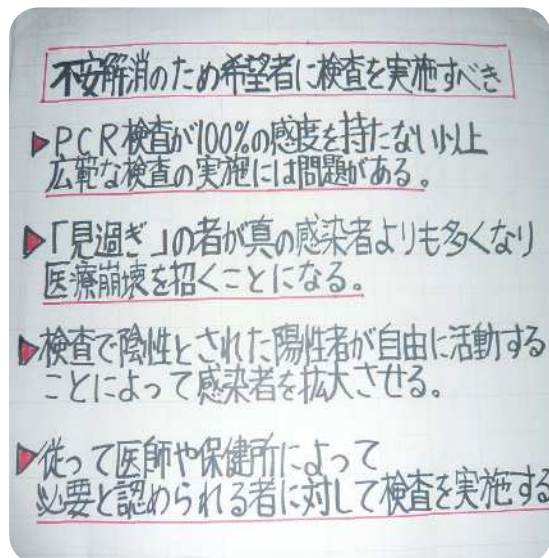 不安解消のため希望者に検査を実施すべき
▶PCR検査が100%の感度を持たない以上
広範な検査の実施には問題がある。
▶「見過ぎ」の者が真の感染者よりも多くなり
医療崩壊を招くことになる。
▶検査で陰性とされた陽性者が自由に活動する
ことによって感染者を拡大させる。
▶従って医師や保健所によって
必要と認められる者に対して検査を実施する